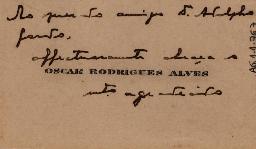 Ao presado amigo D. Adolpho
Pardo,
affectuosamente abraça o
OSCAR RODRIGUES ALVES
mto. agradecido